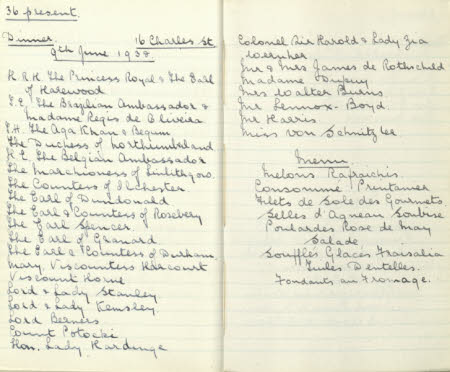 36 present.
Dinner. 16 Charles St.
9th June 1937
H.R.H. The Princess Royal & The Earl
of Harewood
H.E. The Brazilian Ambassador &
Madame Regis de Oliveira
H.H. The Aga Khan & Begum.
The Duchess of Northumberland
H.E. The Belgian Ambassador
The Marchioness of Linlithgow.
The Countess of Ilchester
The Earl of Dundonald
The Earl & Countess of Rosebery
The Earl Spencer.
The Earl of Granard
The Earl & Countess of Durham.
Mary, Viscountess Harcourt
Viscount Horne
Lord & Lady Stanley
Lord & Lady Kemsley
Lord Berners
Count Potocki
Hon. Lady Hardinge
Colonel Sir Harold & Lady Zia
Wernher
Mr & Mrs James de Rothschild
Madame Dupuy
Mrs Walter Burns
Mr Lennox-Boyd.
Mr Harris
Miss von Schnitzler
Menu.
Melons Rafraichis.
Consommé Printanier
Filets de Sole des Gourmets.
Selles d'Agneau Soubise
Poulardes Rose de May
Salade
Souffles Glacés Fraisalia
Tuiles Dentelles.
Fondants au Fromage.